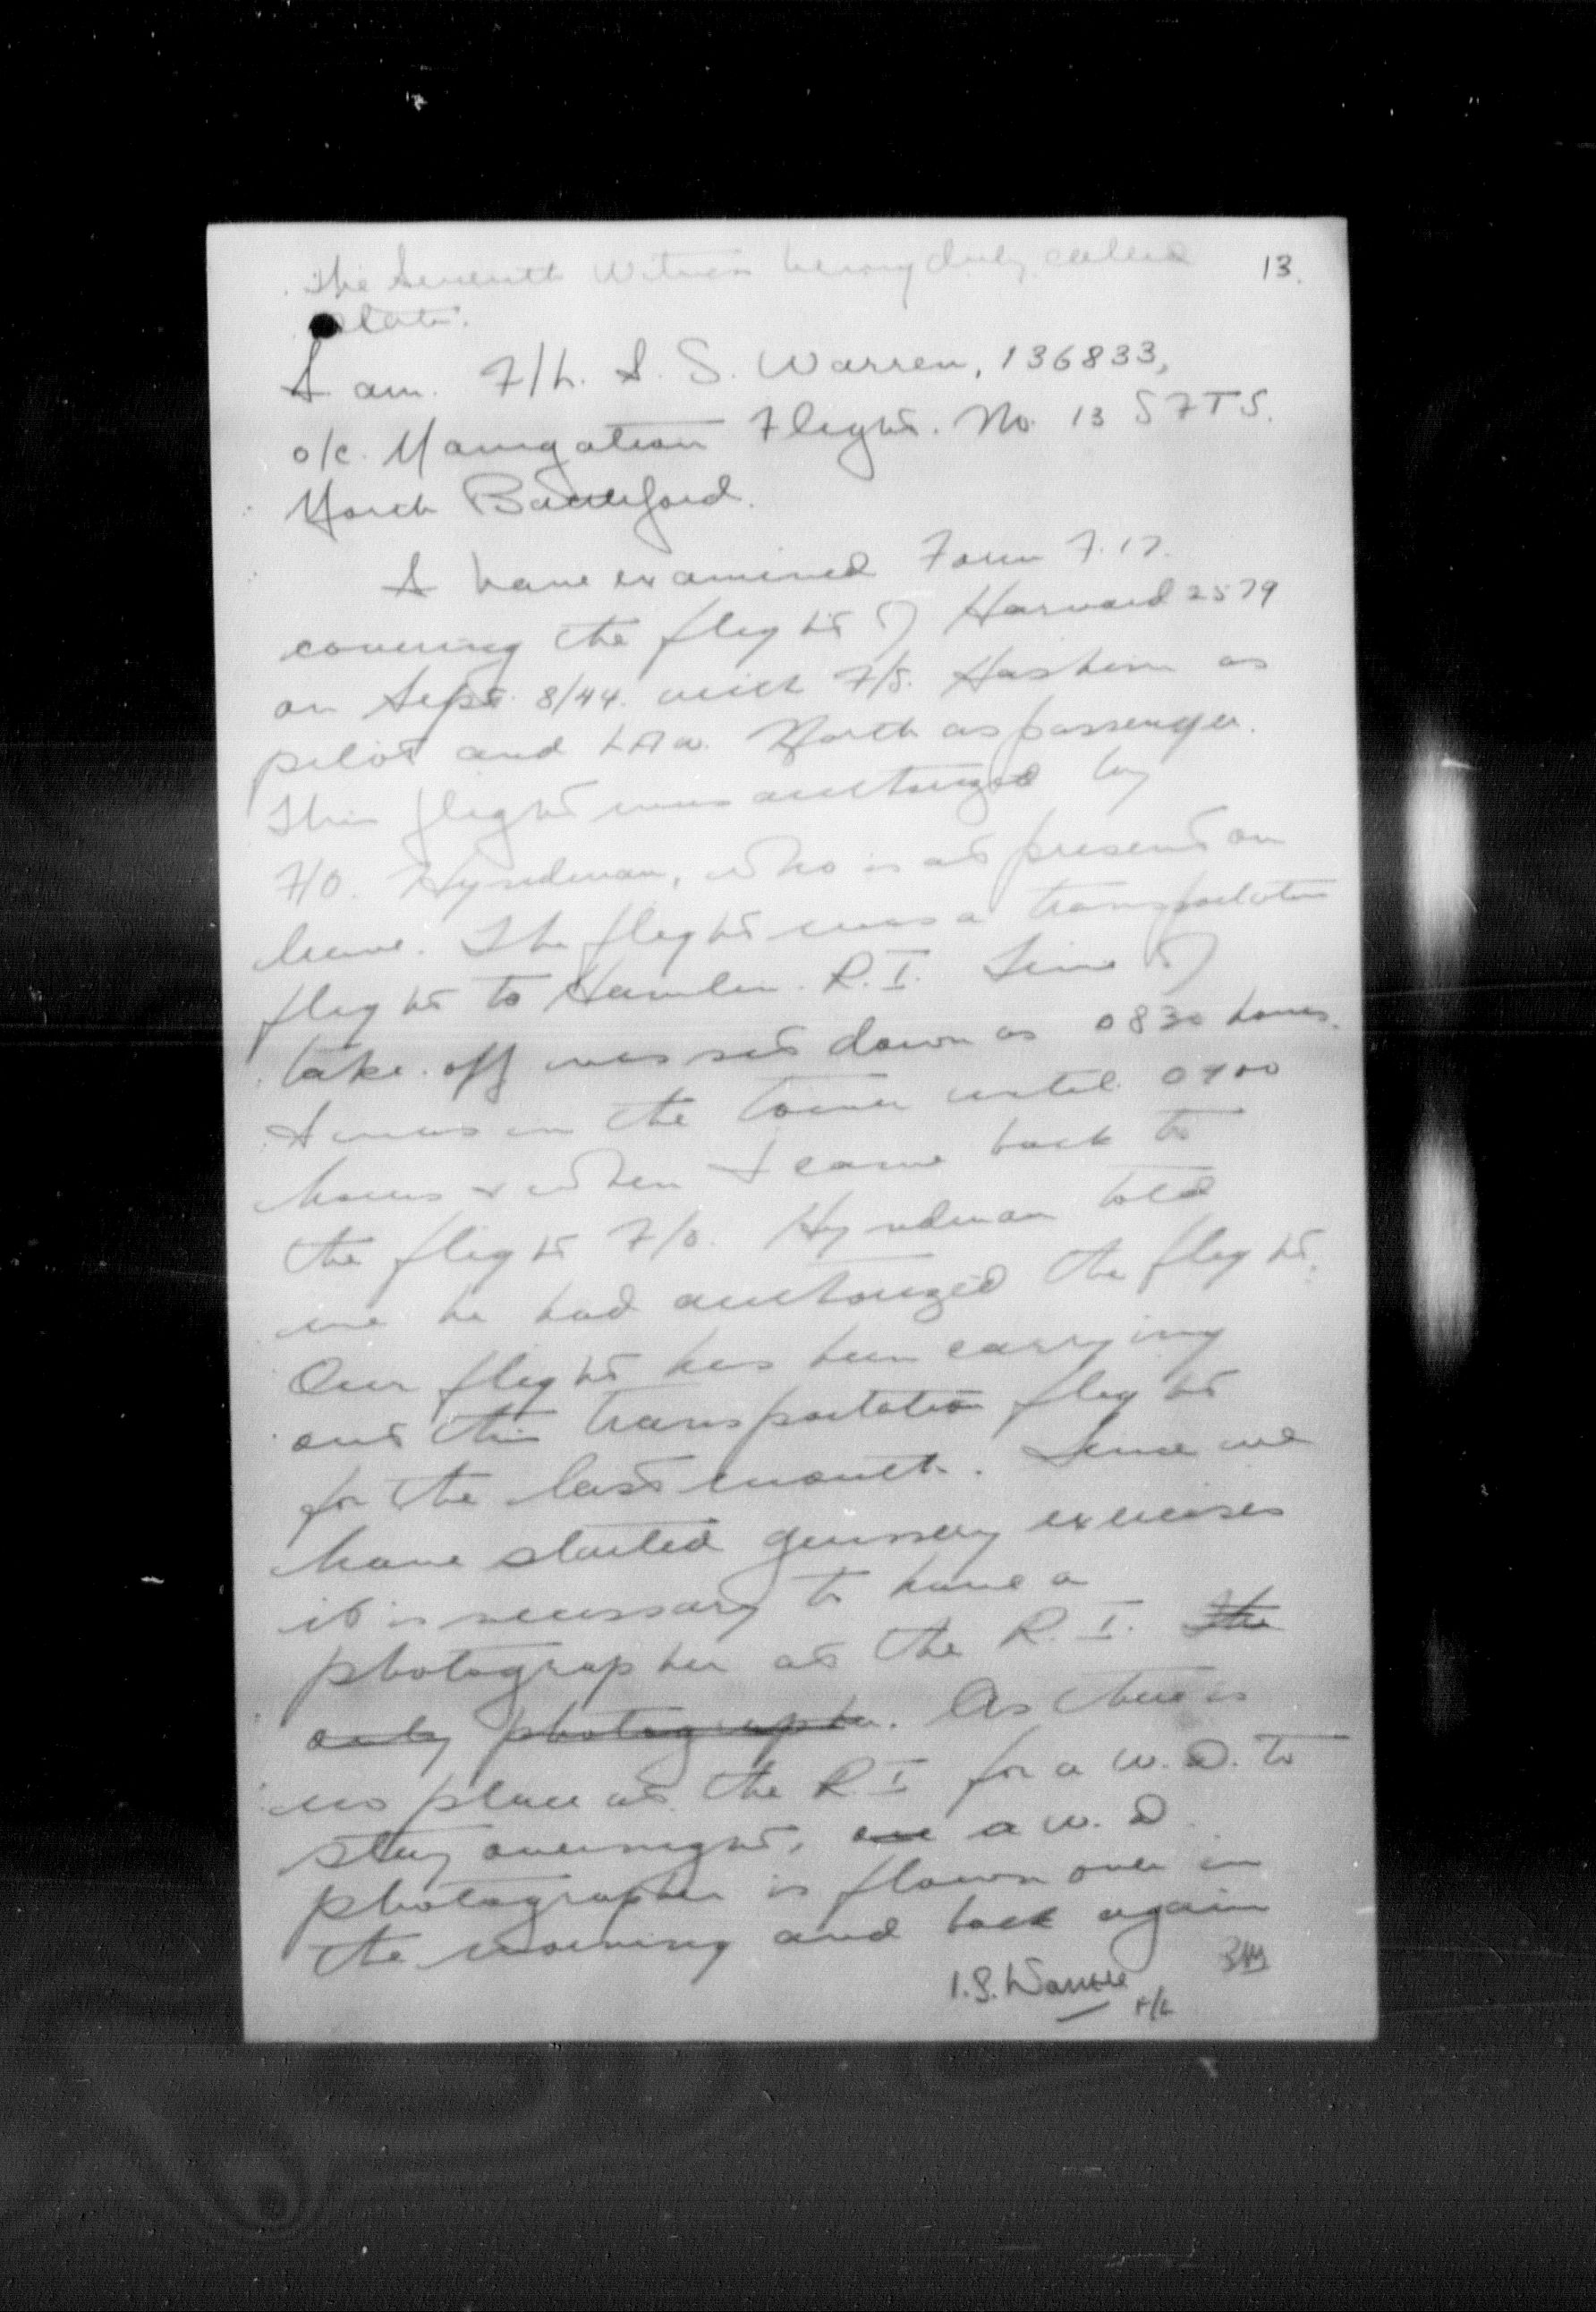 13.
The Seventh Witness being duly called
states.
I am. F/L. I. S. Warren, 136833,
o/c. Navigation Flight. No. 13 SFTS.
North Battleford.
I have examined Form F.17.
covering the flight of Harvard 2579
on Sept. 8/44. with F/S. Haslam as
pilot and LAW. North as passenger.
This flight was authorized by
F/O. Hyndman, who is at present on
leave. The flight was a transportation
flight to Hamlin. R.I. Time of
take off was set down as 0830 hours.
I was in the tower until 0900
hours & when I came back to
the flight F/O. Hyndman told
me he had authorized the flight.
Our flight has been carrying
out this transportation flight
for the last month. Since we
have started gunnery exercises
it is necessary to have a
photographer at the R.I. The
only photographer. As there is
no place at the R.I for a W.D. to
stay overnight, a W.D.
photographer is flown over in
the morning and back again
I.S. Warren
F/L